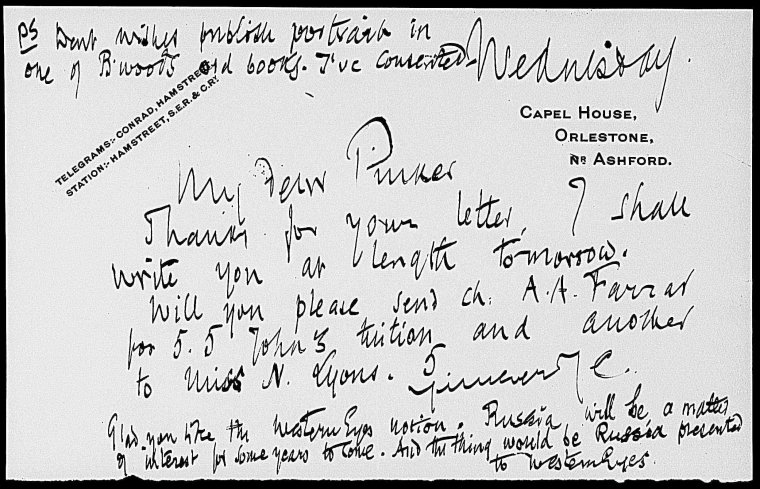 PS Dent wishes publish portrait in
one of B'wood's old books. I've consented.
Wednesday.
TELEGRAMS:- CONRAD, HAMSTREET.
STATION:- HAMSTREET, S.E.R. & C.RY.
CAPEL HOUSE,
ORLESTONE,
NR ASHFORD.
My Dear Pinker
Thanks for your letter. I shall
write you at length tomorrow.
Will you please send ch: A.A. Farrar
for 5.5 John's tuition and another
to Miss N. Lyons. 5
Yours ever J C.
Glad you like the Western Eyes notion. Russia will be a matter
of interest for some years to come. And the thing would be Russia presented
to Western Eyes.